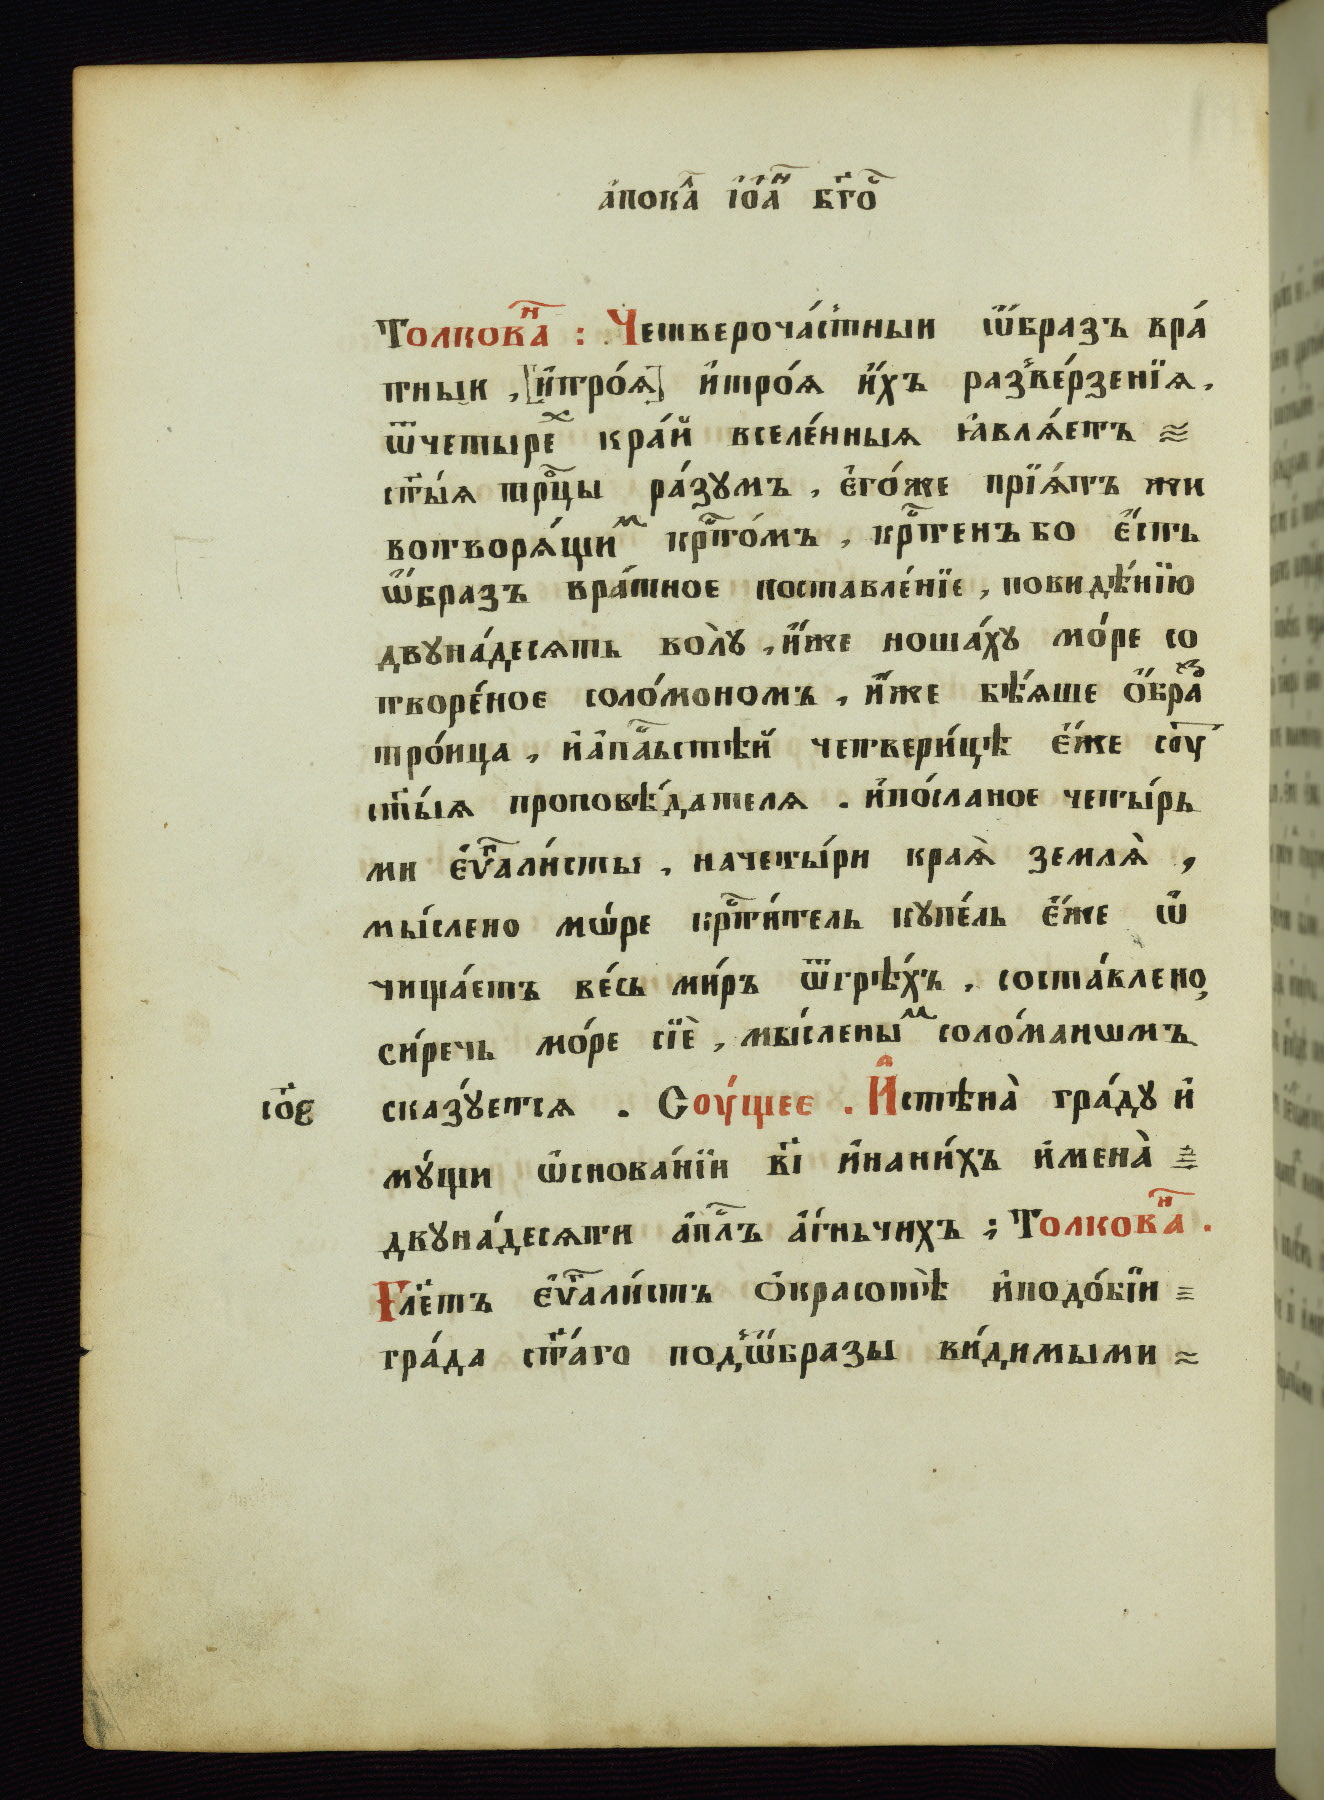 а҆пока̑л і҆ѡа́н бг҃о
Толкова̑н : Четвероча́стныи ѡ҆́бразъ вра́
тныи , [и҆троѧ́] и҆троѧ́ и҆́хъ разве́рзенїѧ ,
ѿчетыре́х кра́й вселе́нныѧ ꙗ҆влѧ́етъ
ст҃ы́ѧ трⷪ҇цы ра́зумъ , є҆го́же прїѧ́тъ жи
вотворѧ́щим крⷭ҇то́мъ , крⷭ҇тенъ бо є҆́сть
ѡ҆́бразъ вра́тное поставле́нїе , повидѣ́нїю
двуна́десѧть волу̀ , и҆́же ноша́ху мо́ре со
творе́ное соло́мономъ , и҆́же бѣ́ѧше ѻ҆́браз
тро́ица , и҆а҆пⷭ҇льстѣй четвери́цѣ є҆́же сꙋ́т
ст҃ы́ѧ проповѣ́дателѧ . и҆по́сланое четы́рь
ми є҆ѵⷢ҇али́сты , начеты́ри краѧ̀ землѧ̀ ,
мы́слено мѡ́ре крⷭ҇ти́тель купе́ль є҆́же ѡ҆
чища́етъ ве́сь ми́ръ ѿгрѣ́хъ . соста́влено ,
си́речь мо́ре сїѐ , мы́сленым соло́манѡмъ
со́в҃ сказу́етсѧ . Соу́щее . И҆стѣна̀ гра́ду и҆
му́щи ѡ҆снова́нїи в҃і и҆нани́хъ и҆мена̀
двуна́десѧти а҆пⷭ҇лъ а҆́гньчихъ ; Толкова̑н .
Гл҃етъ є҆ѵⷢ҇али́стъ ѻ҆красотѣ̀ и҆подо́бїи
гра́да ст҃а́го под̾ѡ҆́бразы ви́димыми